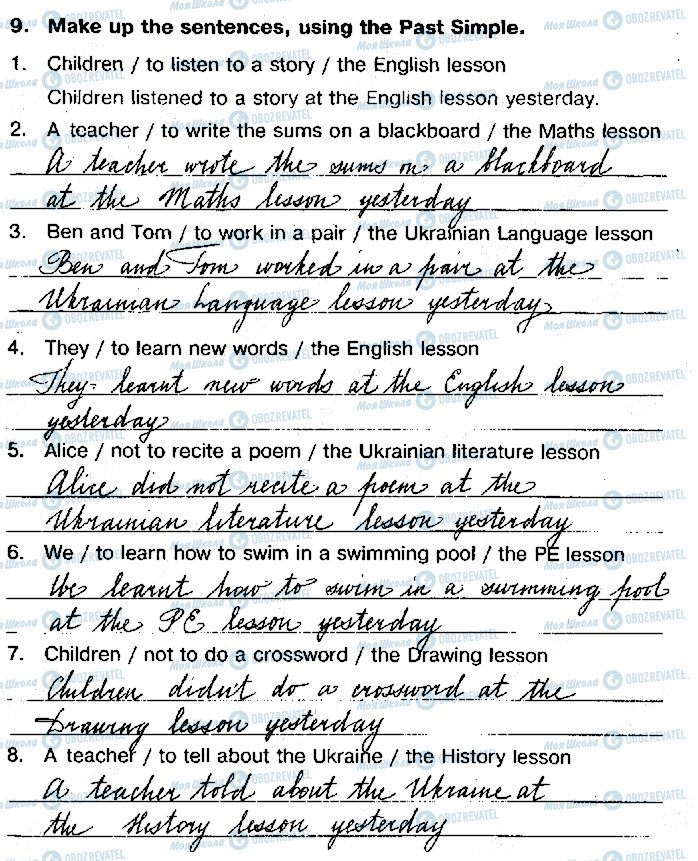 9. Make up the sentences, using the Past Simple.
1. Children / to listen to a story / the English lesson
Children listened to a story at the English lesson yesterday.
2. A teacher / to write the sums on a blackboard / the Maths lesson
A teacher wrote the sums on a blackboard
at the Maths lesson yesterday
3. Ben and Tom / to work in a pair / the Ukrainian Language lesson
Ben and Tom worked in a pair at the
Ukrainian Language lesson yesterday
4. They / to learn new words / the English lesson
They learnt new words at the English lesson
yesterday
5. Alice / not to recite a poem / the Ukrainian literature lesson
Alice did not recite a poem at the
Ukrainian literature lesson yesterday
6. We / to learn how to swim in a swimming pool / the PE lesson
We learnt how to swim in a swimming pool
at the PE lesson yesterday
7. Children / not to do a crossword / the Drawing lesson
Children didn't do a crossword at the
Drawing lesson yesterday
8. A teacher / to tell about the Ukraine / the History lesson
A teacher told about the Ukraine at
the History lesson yesterday
Моя Школа OBOZREVATEL